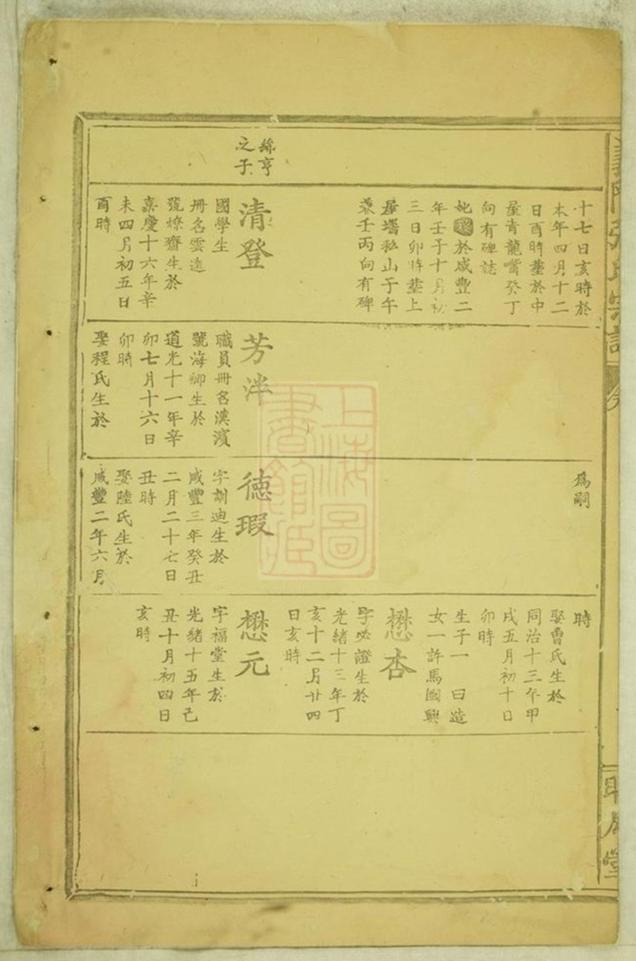 張氏宗譜
孫亨
之子
十七日亥時於
本年四月十二
日酉時塟於中
屋青龍嘴癸丁
向有碑誌
於咸豐二
年壬子十月初
三日卯時塟上
私山子午
壬丙向有碑
清登
國學生
冊名雲逵
號燎齋生於
嘉慶十六年辛
未四月初五日
酉時
芳泮
職員冊名漢濱
號海卿生於
道光十一年辛
卯七月十六日
卯時
娶程氏生於
為嗣
德瑕
字訓迪生於
咸豐三年癸丑
二月二十七日
丑時
娶陸氏生於
咸豐二年六月
時
娶曹氏生於
同治十三年甲
戌五月初十日
卯時
生子一曰造
女一許馬國興
懋杏
證生於
光緒十三年丁
亥十二月廿四
日亥時
懋元
字福堂生於
光緒十五年己
丑十月初四日
亥時
堂
上海圖
書館藏